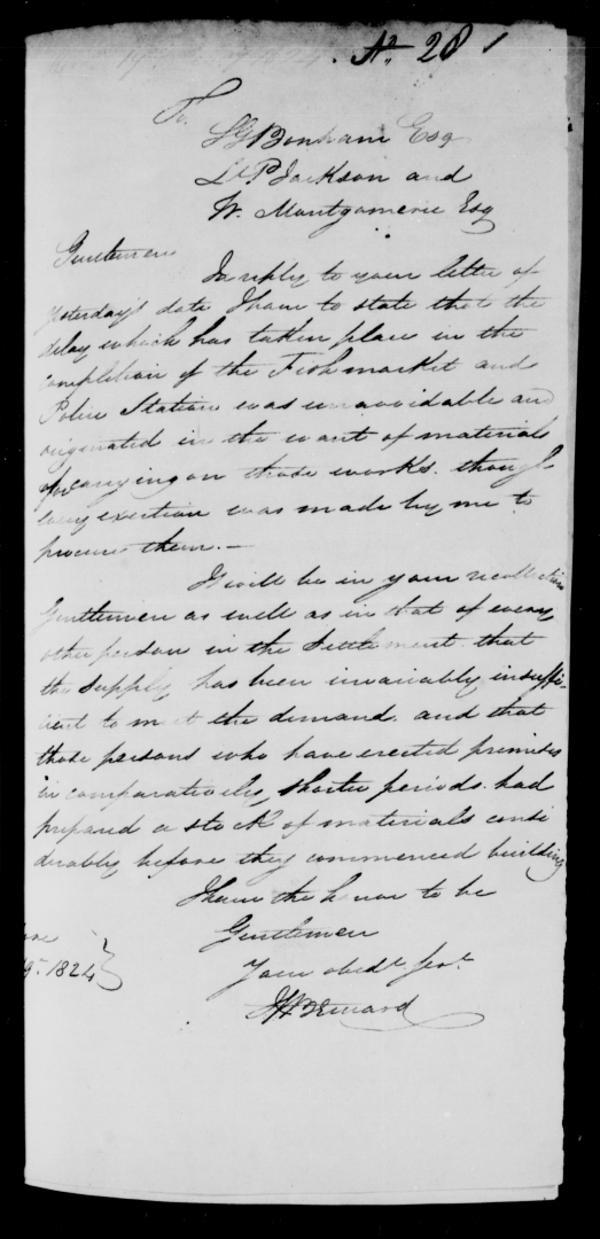 No. 28
To
S G Bonham Esq
Lt. P Jackson and
W. Montgomerie Esq
Gentlemen
In reply to your letter of
yesterday's date I have to state that the
delay which has taken place in the
completion of the Fish market and
Police Station was unavoidable and
originated in the want of materials
for carrying on those works. though
every exertion was made by me to
procure them. —
It will be in your recollection
Gentlemen as well as in that of every
other person in the Settlement. that
the supply has been invariably insuffi-
cient to meet the demand. and that
those persons who have erected premises
in comparatively shorter periods. had
prepared a stock of materials consi
derably before they commenced building
I have the honor to be
Gentlemen
Your obedt. Servt.
1824